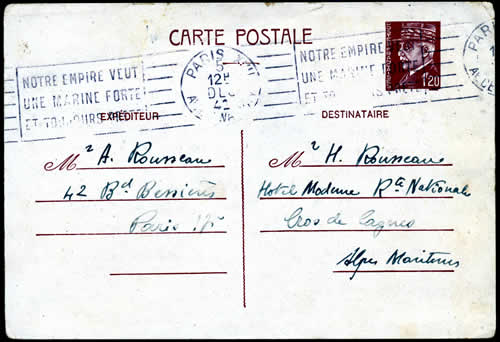 CARTE POSTALE
NOTRE EMPIRE VEUT
UNE MARINE FORTE
ET TOUJOURS
PARIS XVII
12H
5
DEC
41
NOTRE EMPIRE
UNE MARINE
ET TO
1f20
PARIS
EXPÉDITEUR
DESTINATAIRE
Mr A. Rousseau
42 Bd Bessières
Paris 17e
Mr H. Rousseau
Hotel Moderne Rte Nationale
Cros de Cagnes
Alpes Maritimes